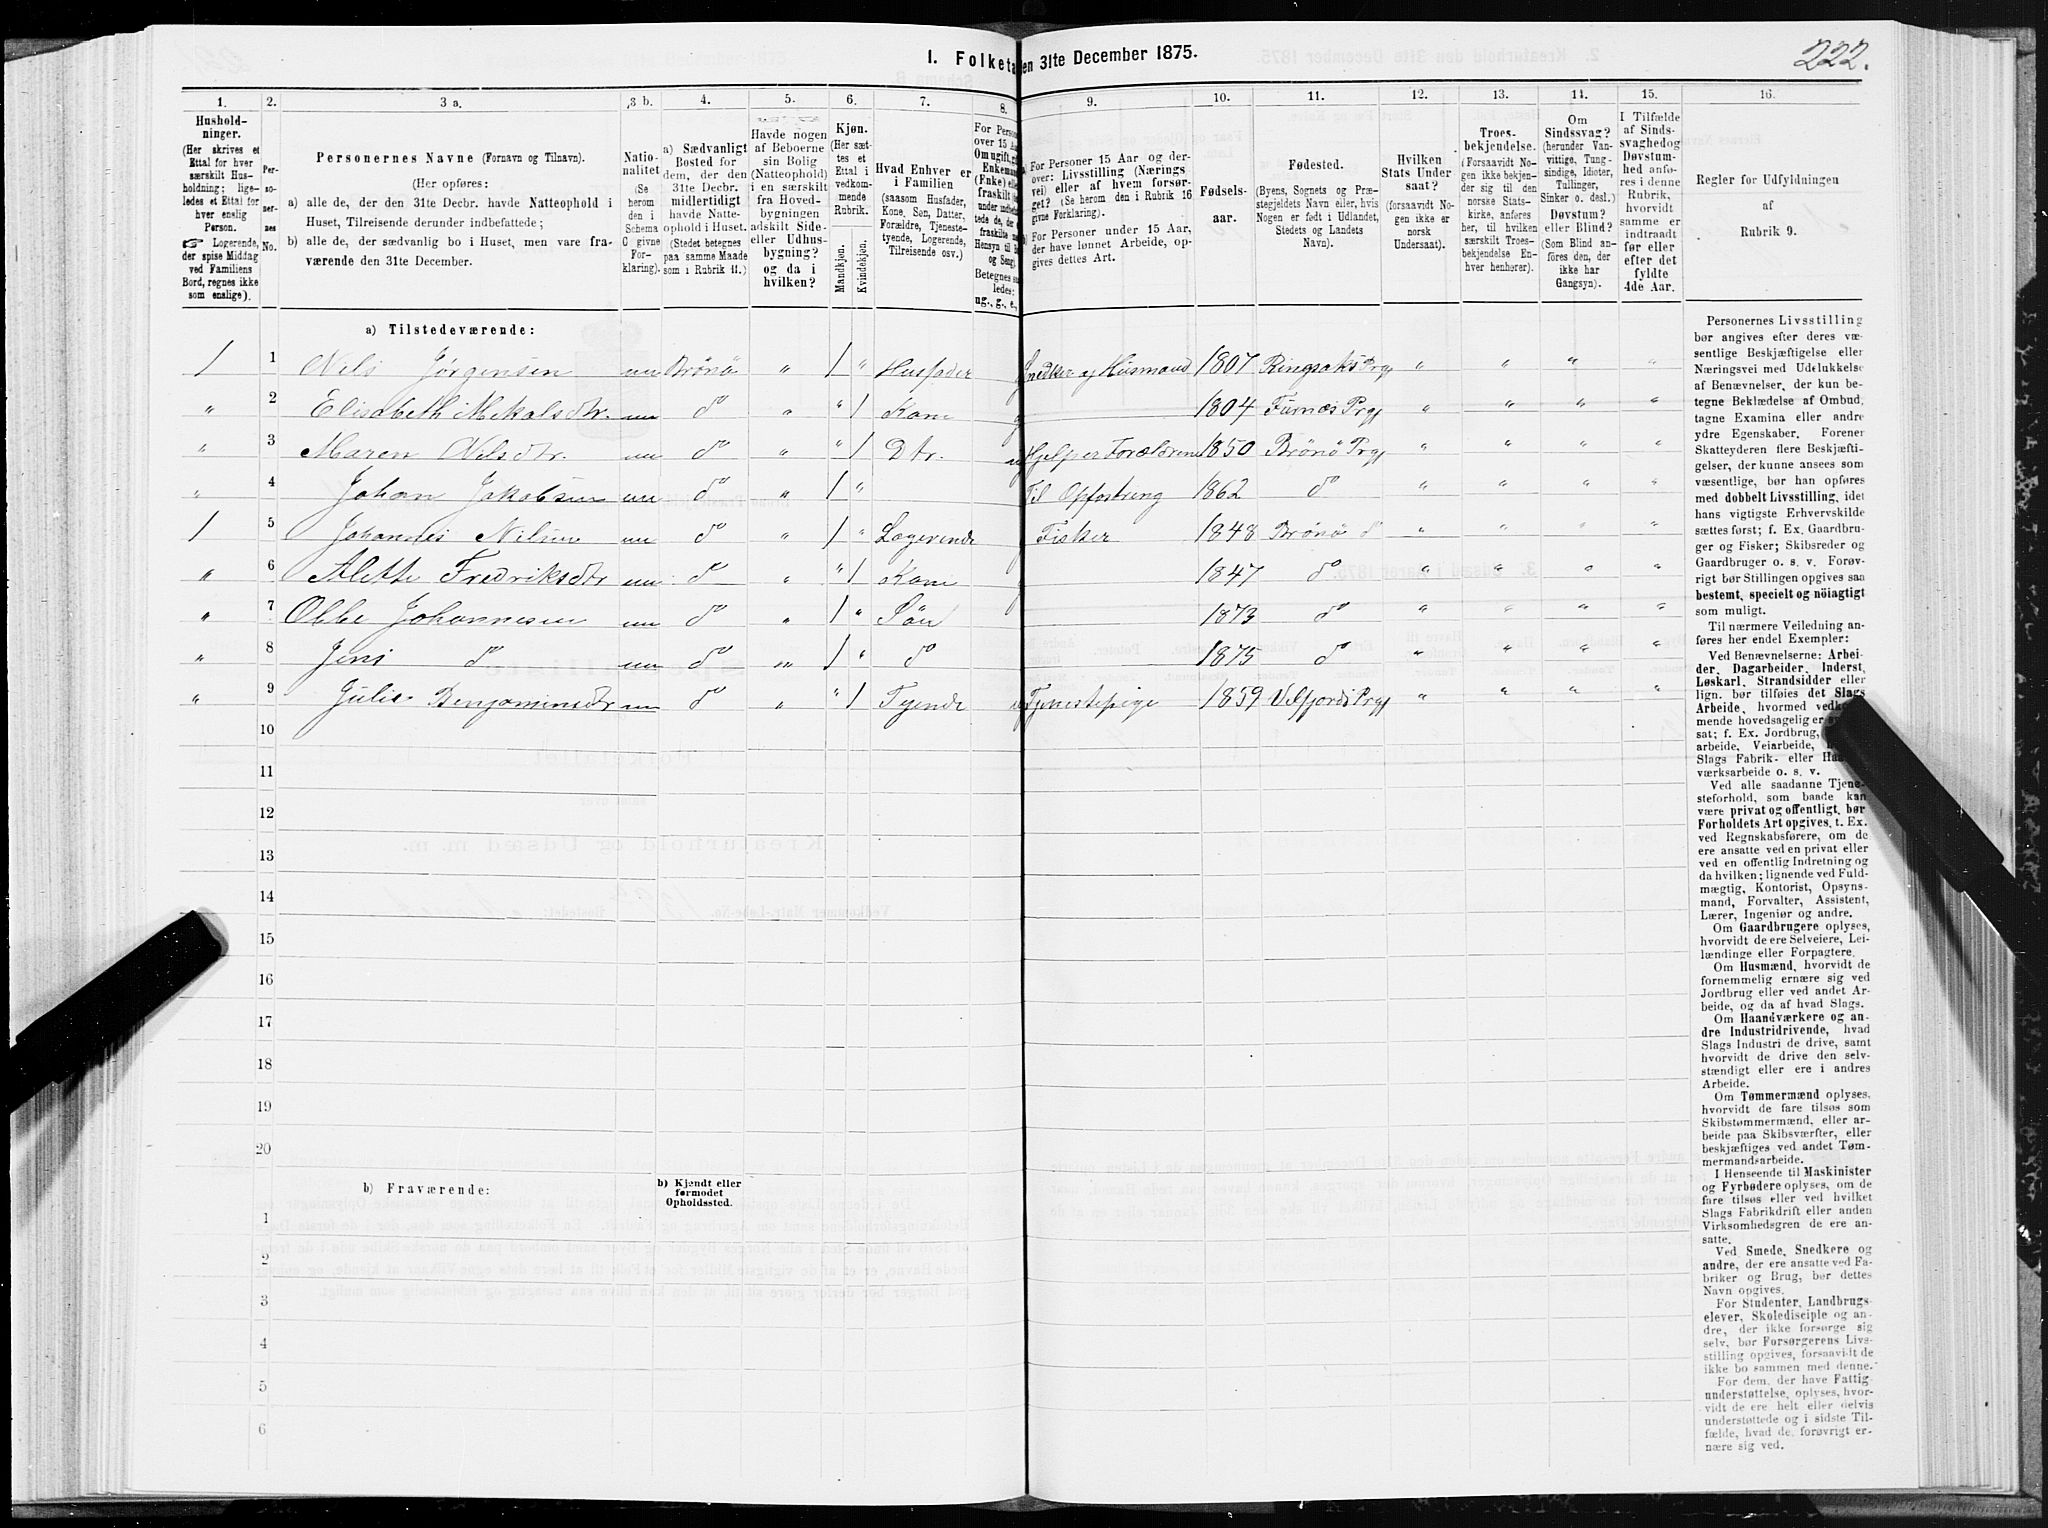 222.
I. Folketa en 31te December 1875.
1. 2. 3 a. 3 b. 4. 5. 6. 7. 8. 9. 10. 11. 12. 13. 14. 15. 16.
Hushold-
ninger.
(Her skrives et
Ettal for hver
særskilt Hus-
holdning; lige-
ledes et Ettal for
hver enslig
Person.
☞ Logerende,
der spise Middag
ved Familiens
Bord, regnes ikke
som enslige).
Per-
so-
ner-
nes
No.
Personernes Navne (Fornavn og Tilnavn).
(Her opføres:
a) alle de, der den 31te Decbr. havde Natteophold i
Huset, Tilreisende derunder indbefattede;
b) alle de, der sædvanlig bo i Huset, men vare fra-
værende den 31te December.
Natio-
nalitet
(Se
herom
den i
Schema
C givne
For-
klaring).
a) Sædvanligt
Bosted for
dem, der den
31te Decbr.
midlertidigt
havde Natte-
ophold i Huset.
(Stedet betegnes
paa samme Maade
som i Rubrik 11.)
Havde nogen
af Beboerne
sin Bolig
(Natteophold)
i en særskilt
fra Hoved-
bygningen
adskilt Side-
eller Udhus-
bygning?
og da i
hvilken?
Kjøn.
(Her sæt-
tes et
Ettal i
vedkom-
mende
Rubrik.
Mandkjøn.
Kvindekjøn.
Hvad Enhver er
i Familien
(saasom Husfader,
Kone, Søn, Datter,
Forældre, Tjeneste-
tyende, Logerende,
Tilreisende osv.)
For Person
over 15 Aar
Om ugift, gi
Enkeman
(Enke) elle
fraskilt
Betegnes sa
ledes:
ug., g., e.,
For Personer 15 Aar og der-
over: Livsstilling (Nærings
vei) eller af hvem forsør-
get? (Se herom den i Rubrik 16
givne Forklaring).
For Personer under 15 Aar,
der have lønnet Arbeide, op-
gives dettes Art.
Fødsels-
aar.
Fødested.
(Byens, Sognets og Præ-
stegjeldets Navn eller, hvis
Nogen er født i Udlandet,
Stedets og Landets
Navn).
Hvilken
Stats Under
saat?
(forsaavidt No-
gen ikke er
norsk
Undersaat).
Troes-
bekjendelse.
(Forsaavidt No-
gen ikke bekjen-
der sig til den
norske Stats-
kirke, anføres
her, til hvilken
særskilt Troes-
bekjendelse En-
hver henhører).
Om
Sindssvag?
(herunder Van-
vittige, Tung-
sindige, Idioter,
Tullinger,
Sinker o. desl.)
Døvstum?
eller Blind?
(Som Blind an-
føres den, der
ikke har
Gangsyn).
I Tilfælde
af Sinds-
svaghedog
Døvstum-
hed anfø-
res i denne
Rubrik,
hvorvidt
samme er
indtraadt
før eller
efter det
fyldte
4de Aar.
Regler for Udfyldningen
af
Rubrik 9.
a) Tilstedeværende:
1 1 Nils Jørgensen nn Brönö " 1 " Husfader g Snedker og Husmand 1807 Ringsaks Prgj " " " "
" 2 Elisabeth Mikalsdtr. nn do " " 1 Kone g 1804 Furnæs Prgj " " " "
" 3 Maren Nilsdtr. nn do " " 1 Dtr. u Hjelper Forældrene 1850 Brönö Prgj " " " "
" 4 Johan Jakobsen nn do " 1 " Til Opfostring 1862 do " " " "
1 5 Johannes Nilsen nn do " 1 " Logerende Fisker 1848 Brönö do " " " "
" 6 Alette Fredriksdtr nn do " " 1 Kone g 1847 do " " " "
" 7 Olbe Johannesen nn do " 1 " Sön 1873 do " " " "
" 8 Jens do nn do " 1 " do 1875 do " " " "
" 9 Julie Benjaminsdtr nn do " " 1 Tyende u Tjenestepige 1859 Velfjords Prgj " " " "
10
11
12
13
14
15
16
17
18
19
20
b) Fraværende:
b) Kjendt eller
formodet
Opholdssted.
1
2
3
4
5
6
Personernes Livsstilling
bør angives efter deres væ-
sentlige Beskjæftigelse eller
Næringsvei med Udelukkelse
af Benævnelser, der kun be-
tegne Beklædelse af Ombud,
tagne Examina eller andre
ydre Egenskaber. Forener
Skatteyderen flere Beskjæfti-
gelser, der kunne ansees som
væsentlige, bør han opføres
med dobbelt Livsstilling, idet
hans vigtigste Erhvervskilde
sættes først; f. Ex. Gaardbru-
ger og Fisker; Skibsreder og
Gaardbruger o. s. v. Forøv-
rigt bør Stillingen opgives saa
bestemt, specielt og nöiagtigt
som muligt.
Til nærmere Veiledning an-
føres her endel Exempler:
Ved Benævnelserne: Arbei-
der, Dagarbeider, Inderst,
Løskarl, Strandsidder eller
lign. bør tilføies det Slags
Arbeide, hvormed
mende hovedsagelig er
sat; f. Ex. Jordbrug,
arbeide, Veiarbeide,
Slags Fabrik- eller
værksarbeide o. s. v.
Ved alle saadanne Tjene-
steforhold, som baade kan
være privat og offentligt, bør
Forholdets Art opgives, t. Ex.
ved Regnskabsførere, om de
ere ansatte ved en privat eller
ved en offentlig Indretning og
da hvilken; lignende ved Fuld-
mægtig, Kontorist, Opsyns-
mand, Forvalter, Assistent,
Lærer, Ingeniør og andre.
Om Gaardbrugere oplyses,
hvorvidt de ere Selveiere, Lei-
lændinge eller Forpagtere.
Om Husmænd, hvorvidt de
fornemmelig ernære sig ved
Jordbrug eller ved andet Ar-
beide, og da af hvad Slags.
Om Haandværkere og an-
dre Industridrivende, hvad
Slags Industri de drive, samt
hvorvidt de drive den selv-
stændigt eller ere i andres
Arbeide.
Om Tømmermænd oplyses,
hvorvidt de fare tilsøs som
Skibstømmermænd, eller ar-
beide paa Skibsværfter, eller
beskjæftiges ved andet Tøm-
mermandsarbeide.
I Henseende til Maskinister
og Fyrbødere oplyses, om de
fare tilsøs eller ved hvilket
Slags Fabrikdrift eller anden
Virksomhedsgren de ere an-
satte.
Ved Smede, Snedkere og
andre, der ere ansatte ved Fa-
briker og Brug, bør dettes
Navn opgives.
For Studenter, Landbrugs-
elever, Skoledisciple og an-
dre, der ikke forsørge sig
selv, bør Forsørgerens Livs-
stilling opgives, forsaavidt de
ikke bo sammen med denne.
For dem, der have Fattig-
understøttelse, oplyses, hvor-
vidt de ere helt eller delvis
understøttede og i sidste Til-
fælde, hvad de, forøvrigt er-
nære sig ved.